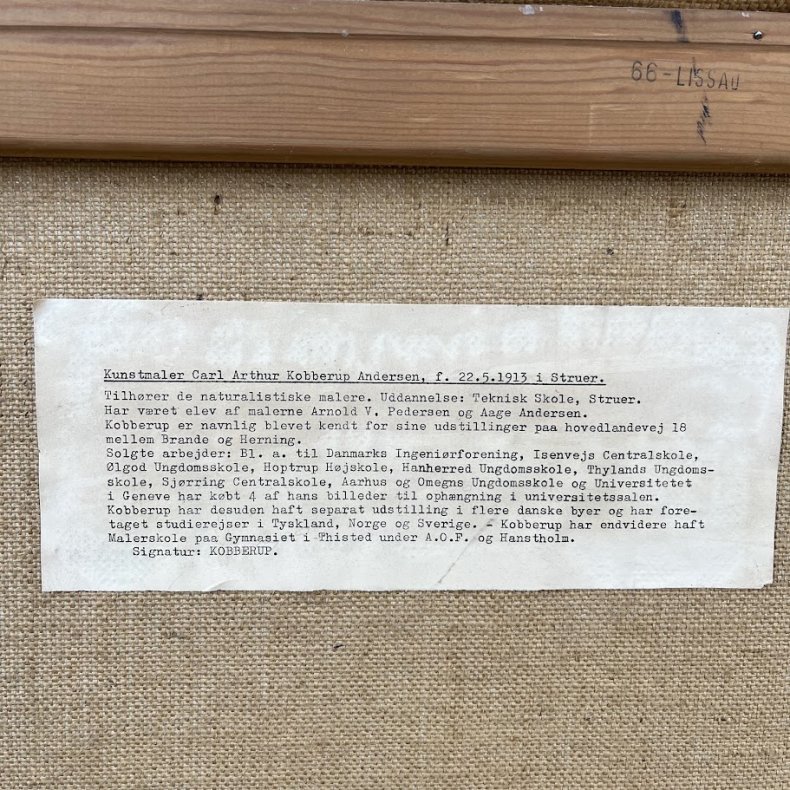 66-LISSAU
Kunstmaler Carl Arthur Kobberup Andersen, f. 22.5.1913 i Struer.
Tilhører de naturalistiske malere. Uddannelse: Teknisk Skole, Struer.
Har været elev af malerne Arnold V. Pedersen og Aage Andersen.
Kobberup er navnlig blevet kendt for sine udstillinger paa hovedlandevej 18
mellem Brande og Herning.
Solgte arbejder: Bl. a. til Danmarks Ingeniørforening, Isenvejs Centralskole,
Ølgod Ungdomsskole, Hoptrup Højskole, Hanherred Ungdomsskole, Thylands Ungdoms-
skole, Sjørring Centralskole, Aarhus og Omegns Ungdomsskole og Universitetet
i Geneve har købt 4 af hans billeder til ophængning i universitetssalen.
Kobberup har desuden haft separat udstilling i flere danske byer og har fore-
taget studierejser i Tyskland, Norge og Sverige. - Kobberup har endvidere haft
Malerskole paa Gymnasiet i Thisted under A.O.F. og Hanstholm.
Signatur: KOBBERUP.